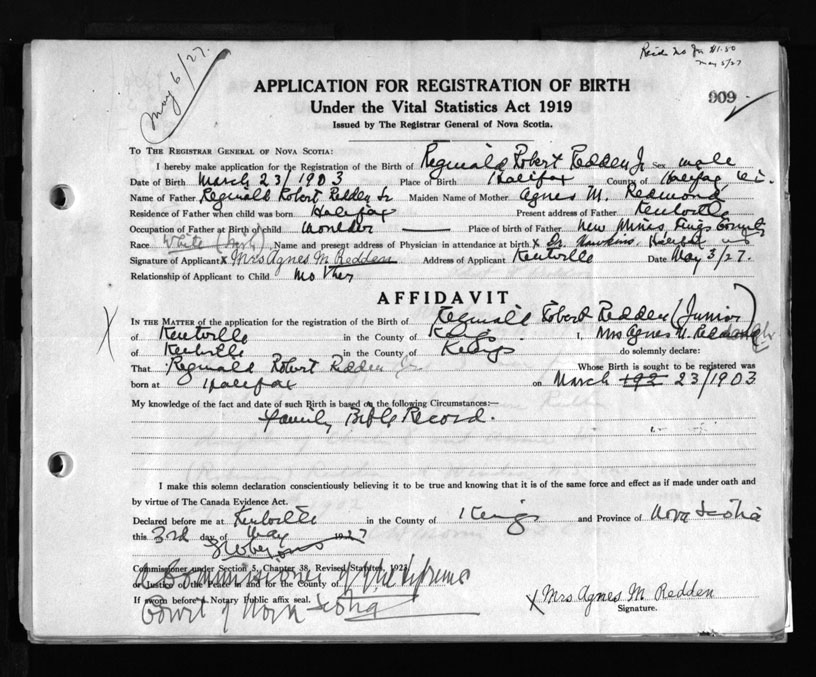 May 6/27.
$1.50
May 5/27
APPLICATION FOR REGISTRATION OF BIRTH
909
Under the Vital Statistics Act 1919
Issued by The Registrar General of Nova Scotia.
TO THE REGISTRAR GENERAL OF NOVA SCOTIA:
I hereby make application for the Registration of the Birth of Reginald Robert Redden Jr Sex male
Date of Birth March 23/1903 Place of Birth Halifax County of Halifax
Name of Father Reginald Robert Redden Sr Maiden Name of Mother Agnes M. Redmond
Residence of Father when child was born Halifax Present address of Father Kentville
Occupation of Father at Birth of child Moulder Place of birth of Father New Minas, Kings County
Race White Name and present address of Physician in attendance at birth X Dr. Hawkins, Halifax
Signature of Applicant X Mrs Agnes M. Redden Address of Applicant Kentville Date May 3/27.
Relationship of Applicant to Child Mother
AFFIDAVIT
IN THE MATTER of the application for the registration of Birth of Reginald Robert Redden (Junior)
X
of Kentville in the County of Kings I, Mrs Agnes M. Redden
of Kentville in the County of Kings do solemnly declare:
That Reginald Robert Redden Jr Whose Birth is sought to be registered was
born at Halifax on March 192 23/1903
My knowledge of the fact and date of such Birth is based on the following Circumstances:—
Family Bible Record.
I make this solemn declaration conscientiously believing it to be true and knowing that it is of the same force and effect as if made under oath and
by virtue of The Canada Evidence Act.
Declared before me at Kentville in the County of Kings and Province of Nova Scotia
this 3rd day of May 1927
Commissioner under Section 5, Chapter 38, Revised Statutes, 1923
A Commissioner of the Supreme
Justice of the Peace in and for the County of
If sworn before a Notary Public affix seal.
Court of Nova Scotia
X Mrs Agnes M. Redden
Signature.